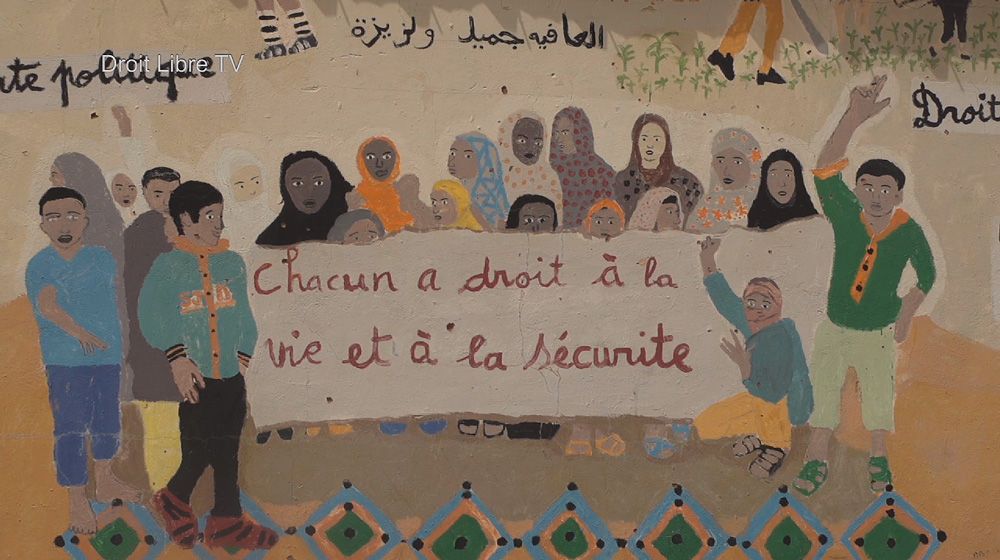 العافيه جميله ولزيزة
Droit Libre TV
te politique
Droit
Chacun a droit à la
vie et à la sécurite